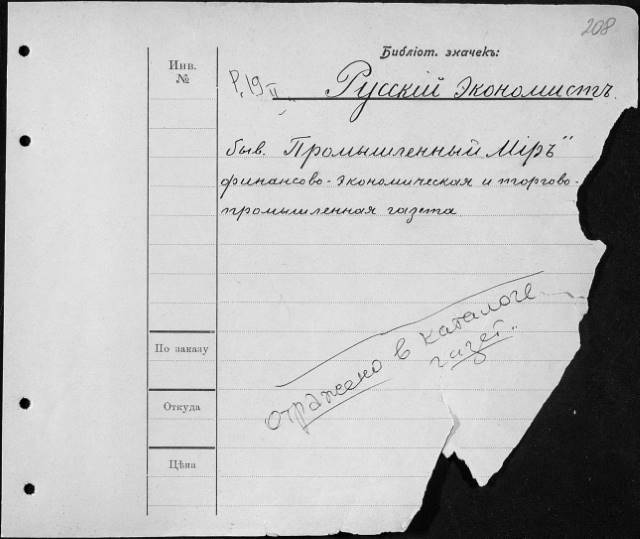 208
Библіот. значекъ:
Инв.
№
Р. 19 II
Русскій Экономистъ.
быв. Промышленный Міръ"
финансово-экономическая и торгово-
промышленная газета
отражено в каталоге
газет.
По заказу
Откуда
Цѣна